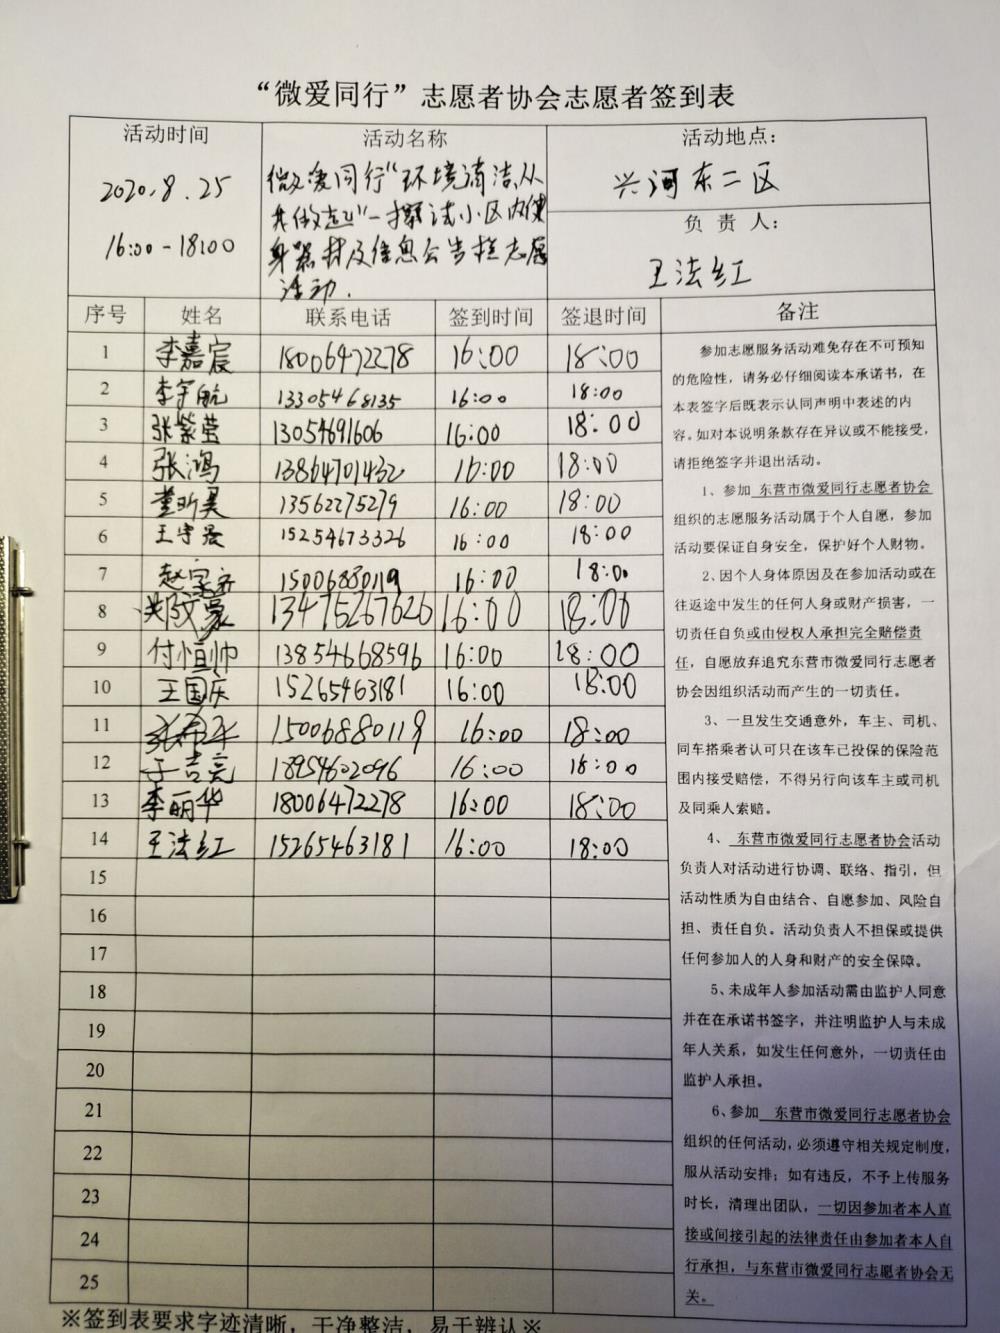 “微爱同行”志愿者协会志愿者签到表
活动时间
2020.8.25
16:00-18:00
活动名称
微爱同行“环境清洁,从
我做起”一擦拭小区内健
身器材及信息公告栏志愿
活动.
活动地点:
兴河东二区
负 责 人:
王法红
序号 姓名 联系电话 签到时间 签退时间 备注
1 李嘉宸 18006472278 16:00 18:00
2 李宇航 13305468135 16:00 18:00
3 张紫莹 13054691606 16:00 18:00
4 张鸿 13864701432 16:00 18:00
5 董昕昊 13562275279 16:00 18:00
6 王守晟 15254673326 16:00 18:00
7 15006880119 16:00 18:00
8 13475267626 16:00 18:00
9 付恒帅 13854668596 16:00 18:00
10 王国庆 15265463181 16:00 18:00
11 15006880119 16:00 18:00
12 于吉亮 18954602096 16:00 18:00
13 李丽华 18006472278 16:00 18:00
14 王法红 15265463181 16:00 18:00
15
16
17
18
19
20
21
22
23
24
25
参加志愿服务活动难免存在不可预知
的危险性，请务必仔细阅读本承诺书，在
本表签字后既表示认同声明中表述的内
容。如对本说明条款存在异议或不能接受，
请拒绝签字并退出活动。
1、参加 东营市微爱同行志愿者协会
组织的志愿服务活动属于个人自愿，参加
活动要保证自身安全，保护好个人财物。
2、因个人身体原因及在参加活动或在
往返途中发生的任何人身或财产损害，一
切责任自负或由侵权人承担完全赔偿责
任，自愿放弃追究东营市微爱同行志愿者
协会因组织活动而产生的一切责任。
3、一旦发生交通意外，车主、司机、
同车搭乘者认可只在该车已投保的保险范
围内接受赔偿，不得另行向该车主或司机
及同乘人索赔。
4、 东营市微爱同行志愿者协会活动
负责人对活动进行协调、联络、指引，但
活动性质为自由结合、自愿参加、风险自
担、责任自负。活动负责人不担保或提供
任何参加人的人身和财产的安全保障。
5、未成年人参加活动需由监护人同意
并在在承诺书签字，并注明监护人与未成
年人关系，如发生任何意外，一切责任由
监护人承担。
6、参加 东营市微爱同行志愿者协会
组织的任何活动，必须遵守相关规定制度，
服从活动安排；如有违反，不予上传服务
时长，清理出团队，一切因参加者本人直
接或间接引起的法律责任由参加者本人自
行承担，与东营市微爱同行志愿者协会无
关。
※签到表要求字迹清晰，干净整洁，易于辨认※